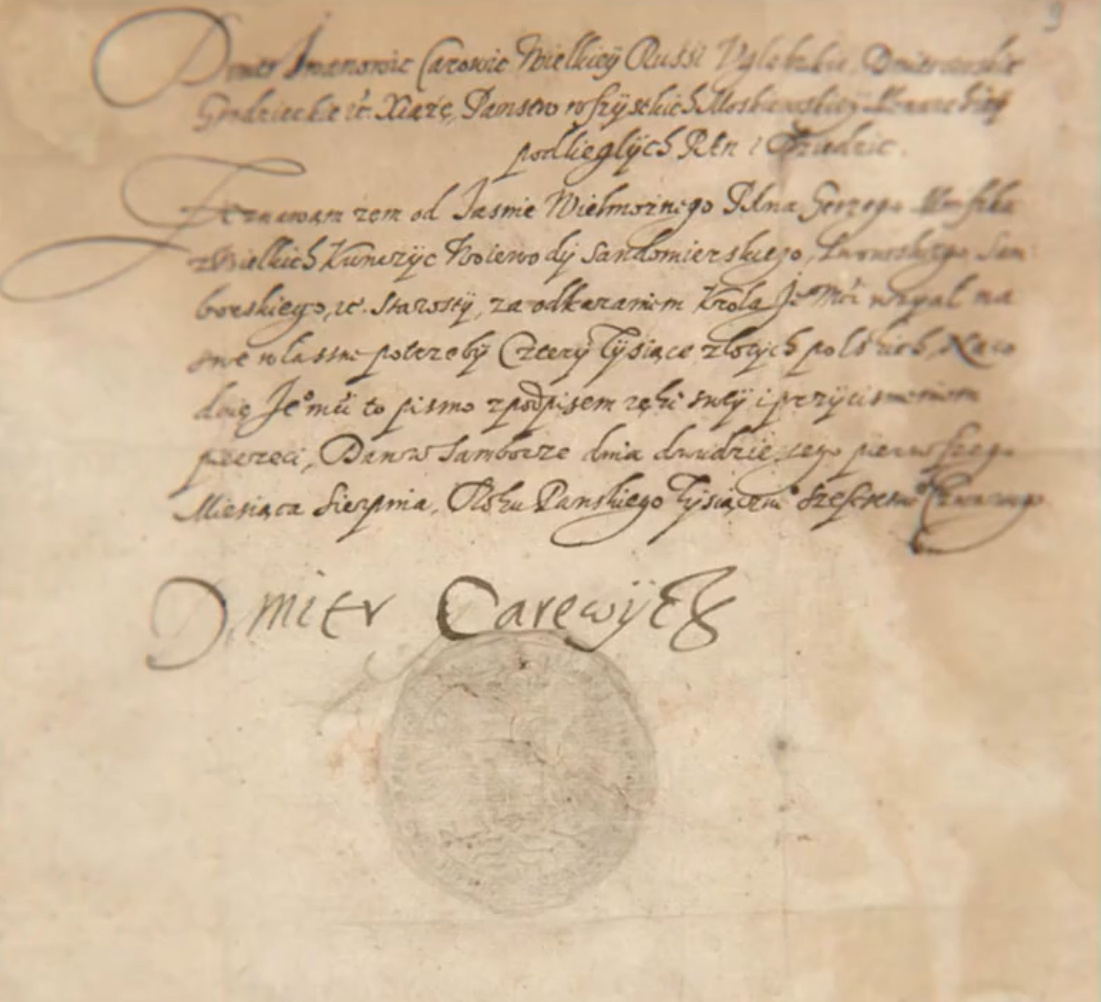 Dmitr Iwanowic Carowic Wielkiey Russi Uglebzkie, Dmitrowskie
Grodzieckie etc. Xiąże, Panstw wszystkich Moskiewskiey Monarchiey
podlieglych PAn i Dziedzic.
Zeznawam żem od Jasnie Wielmożnego PAna Gerzego Mniszka
z Wielkich Kunczyc Woiewody Sandomierskiego, Lwowskiego Sam
borskiego, etc. Starosty, za odkazaniem Krola Je° Mći wzyął na
swe własne potrzeby Cztery Tysiące złotych polskich, Na co
daię Je° mći to pismo z podpisem ręki swey i przycisnieniem
pieczęci, Dan w Samborze dnia dwudziestego pierwszego
Miesiąca Sierpnia, Roku Panskiego Tysiącz° Szescsetn° Czwartego
Dmitr Carewycz